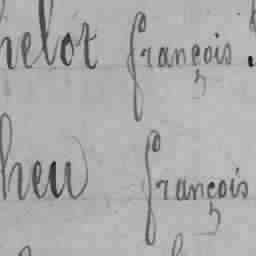 helot françois
heu françois